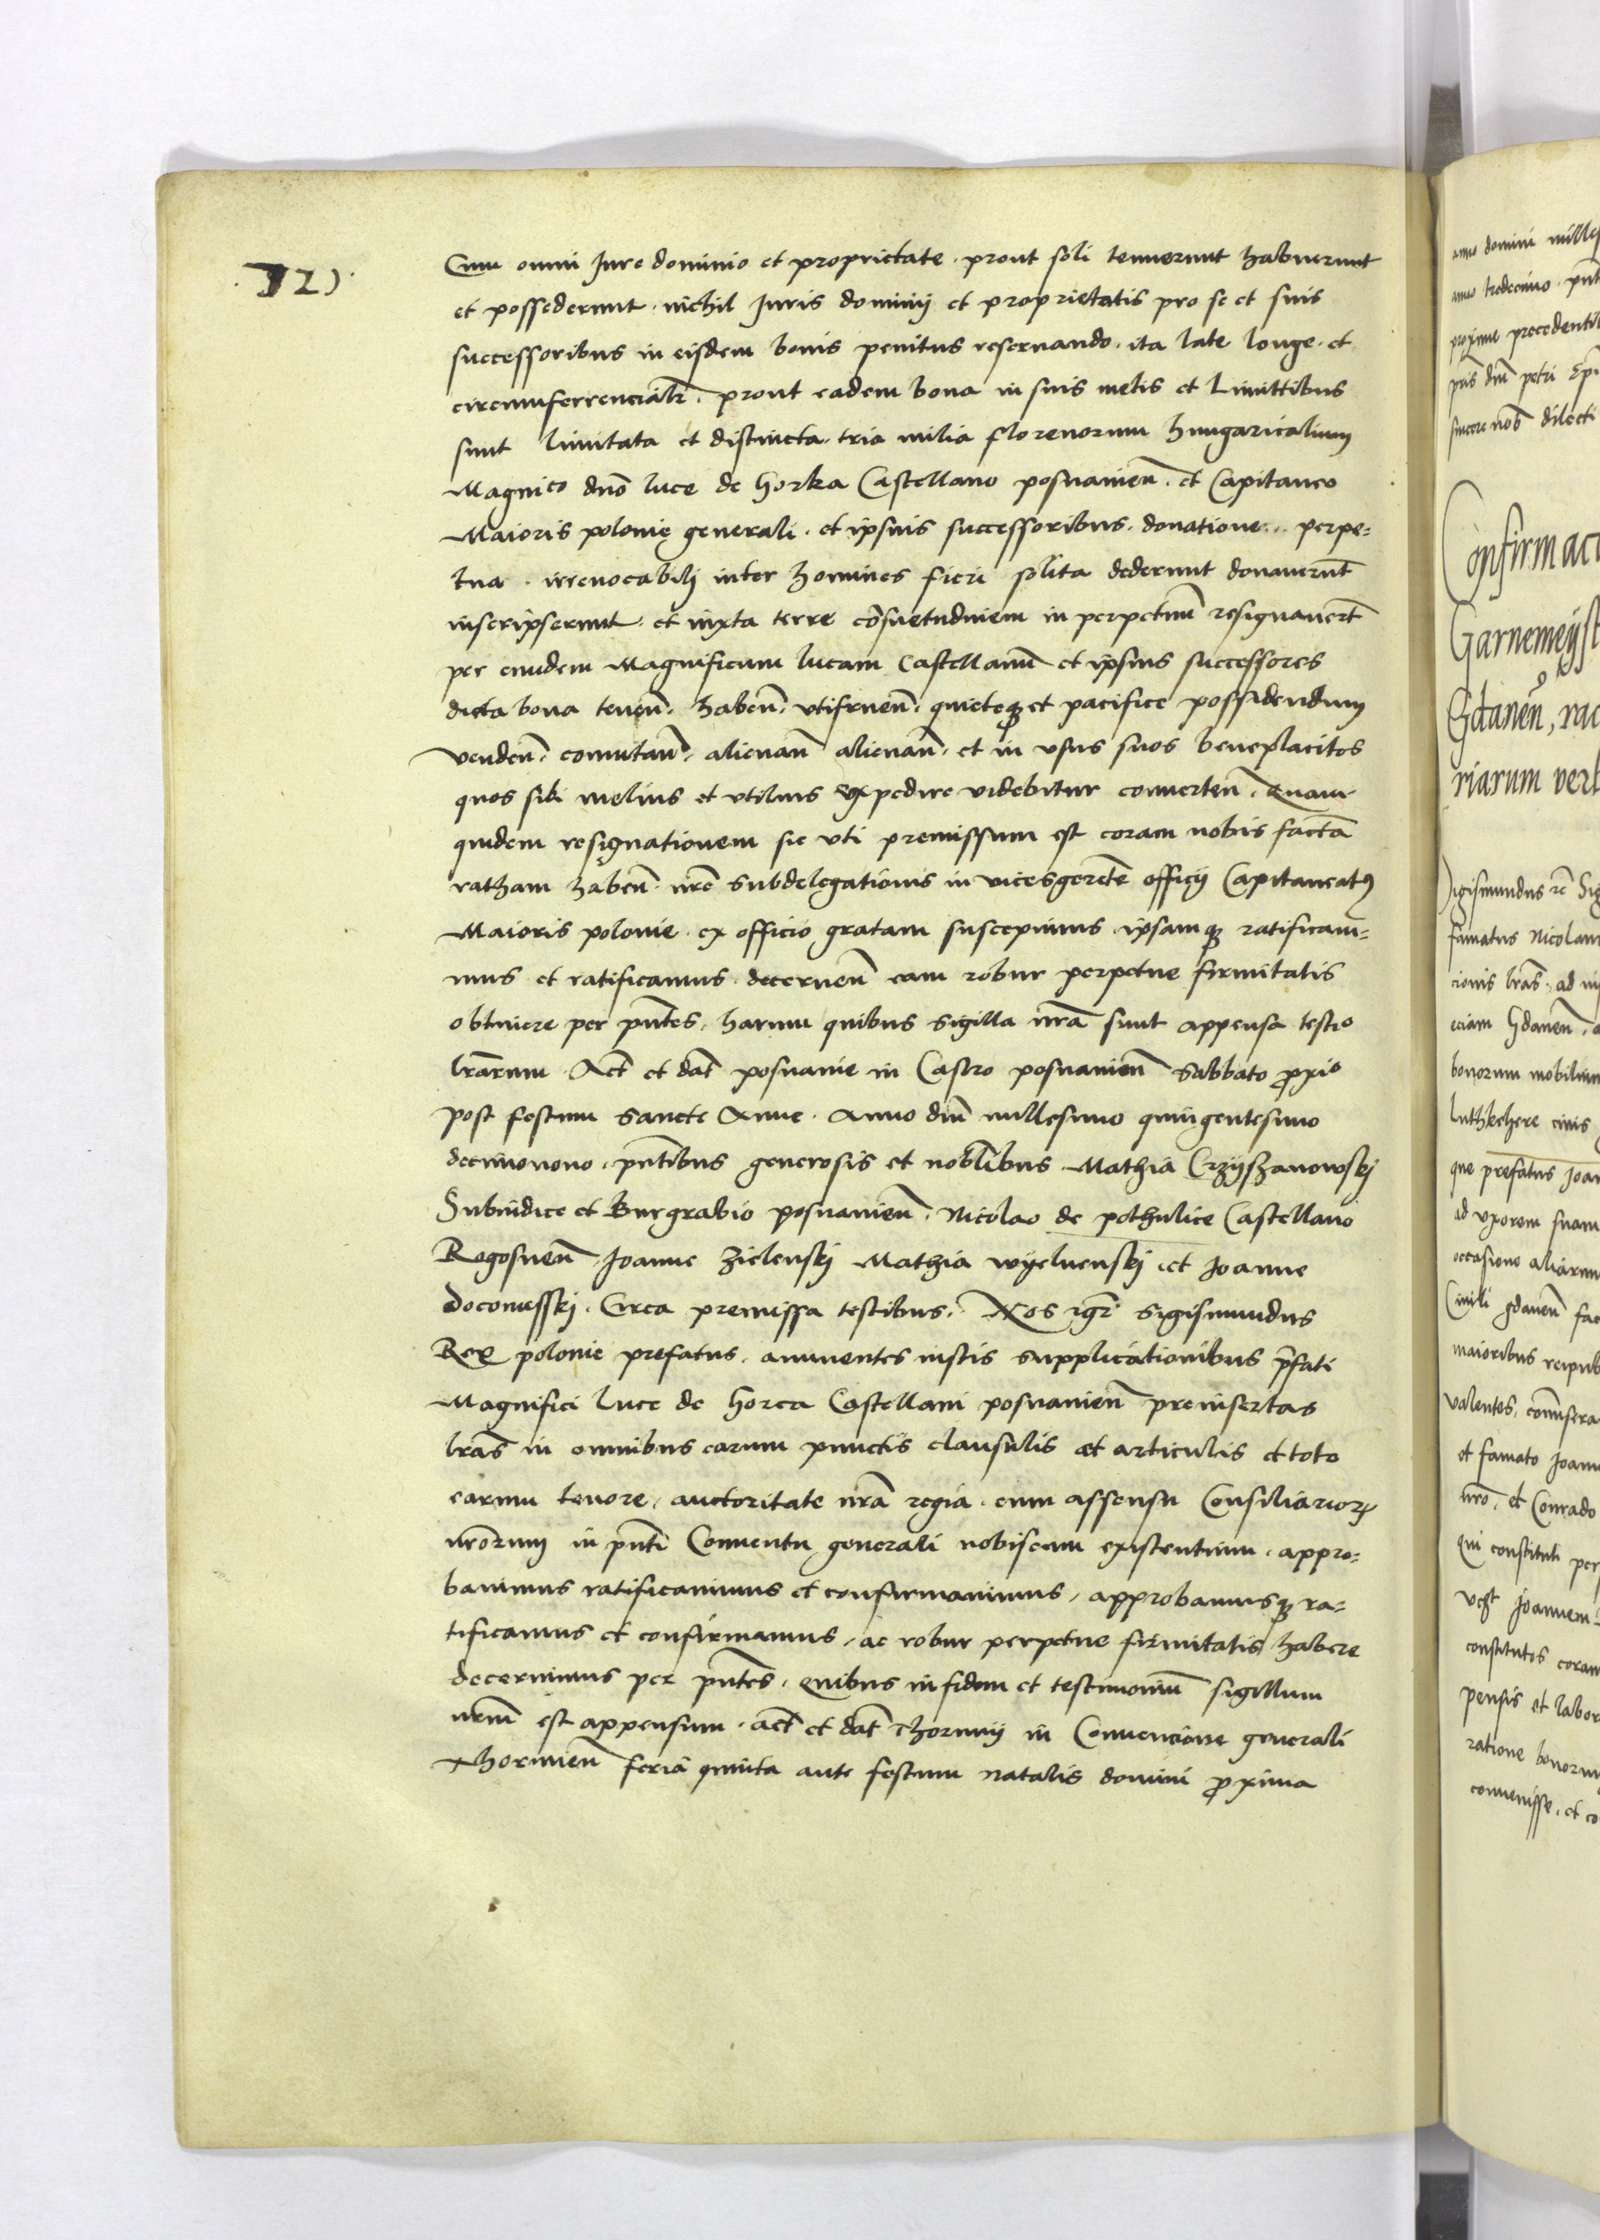 Cum omni Jure dominio et proprietate. prout soli tenuerunt habuerunt
et possederunt. nichil Juris dominij et proprietatis pro se et suis
successoribus in eisdem bonis penitus reseruando. ita late longe. et
circumferrencialr̃. prout eadem bona in suis metis et Limittibus
sunt limitata et distincta. tria milia florenorum hungaricalium
Magnico dnõ luce de horka Castellano posnanien̄. et Capitaneo
Maioris polonię generali. et ipsius successoribus. donatione... perpe-
tua. irreuocabilj inter homines fieri solita dederunt donauerũt
inscripserunt. et iuxta terre cõsuetudinem in perpetuũ resignauerr̃t
per eundem Magnificum lucam Castellanũ et ipsius successores
dicta bona tenen̄. haben̄. vtifruen̄. quieteq₃ et pacifice possidendum
venden̄. comutan̄. alienan̄ alienan̄. et in vsus suos beneplacitos
quos sibi melius et vtilius expedire videbitur conuerten̄. Quam
quidem resignationem sic vti premissum est coram nobis factã
ratham haben̄. nr̃e subdelegationis in vicesgerẽte officij Capitaneatꝰ
Maioris polonie. ex officio gratam suscepimus. ipsamq₃ ratificaui-
mus et ratificamus. decernen̄ eam robur perpetue firmitatis
obtinere per pñtes. harum quibus sigilla nr̃a sunt appensa testio
lrãrum. Act̃ et dat̃ posnanie in Castro posnanien̄ Sabbato ꝓxio
post festum Sancte Anne. Anno dnĩ millesimo quingentesimo
decimonono. pñtibus generosis et nobl̃ibus Mathia Crzyszanowskj
Subiudice et Burgrabio posnanien̄. Nicolao de pothulice Castellano
Rogosnen̄ Joanne Zielenskj Mathia wyelnenskj. et Joanne
doconiesskj. Circa premissa testibus. Nos igr̃ Sigismundus
Rex polonie prefatus. annuentes iustis supplicationibus p̃fati
Magnifici Luce de horca Castellani posnanien̄ preinsertas
lr̃as in omnibus earum punctis clausulis et articulis et toto
earum tenore, auctoritate nr̃a regia. cum assensu Consiliarioꝝ
nr̃orum in pñti Conuentu generali nobiscum existentium. appro-
bauimus ratificauimus et confirmauimus, approbamusq₃ ra-
tificamus et confirmamus, ac robur perpetue firmitatis habere
decernimus per pñtes. Quibus in fidem et testimoniũ sigillum
nr̃m est appensum. act̃ et dat̃ Thorunij in Conuencione generali
Thorunien̄ feria quinta ante festum natalis domini ꝓxima
anno domini mille
anno tredecimo. pñt
proxime precedenti
pris dnĩ petri Epi
sincere nob̃ dilecti
Confirmaci
Garnemeyst
Gdanen̄, rac
riarum verb
Sigismundus rc̃ Sig
famatus Nicolau
cionis lr̃as. ad in
eciam Gdanen̄.
bonorum mobilium
luthkehere ciuis
que prefatus Joan
ad vxorem suam
occasione aliarum
Ciuili gdanen̄ fac
maioribus reipub
valentes.
et famato Joann
nr̃o. et Conrado
Qui constituti per
vcz̃t Joannem
constitutos coram
pensis et labor
ratione bonorum
conuenisse. et co